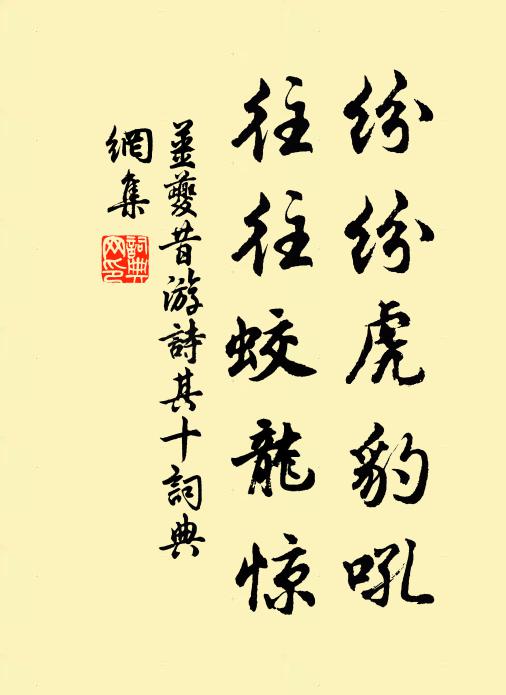 纷纷虎豹吼
往往蛟龍惊
姜夔昔游詩其十詞典
網集
詞典
网印